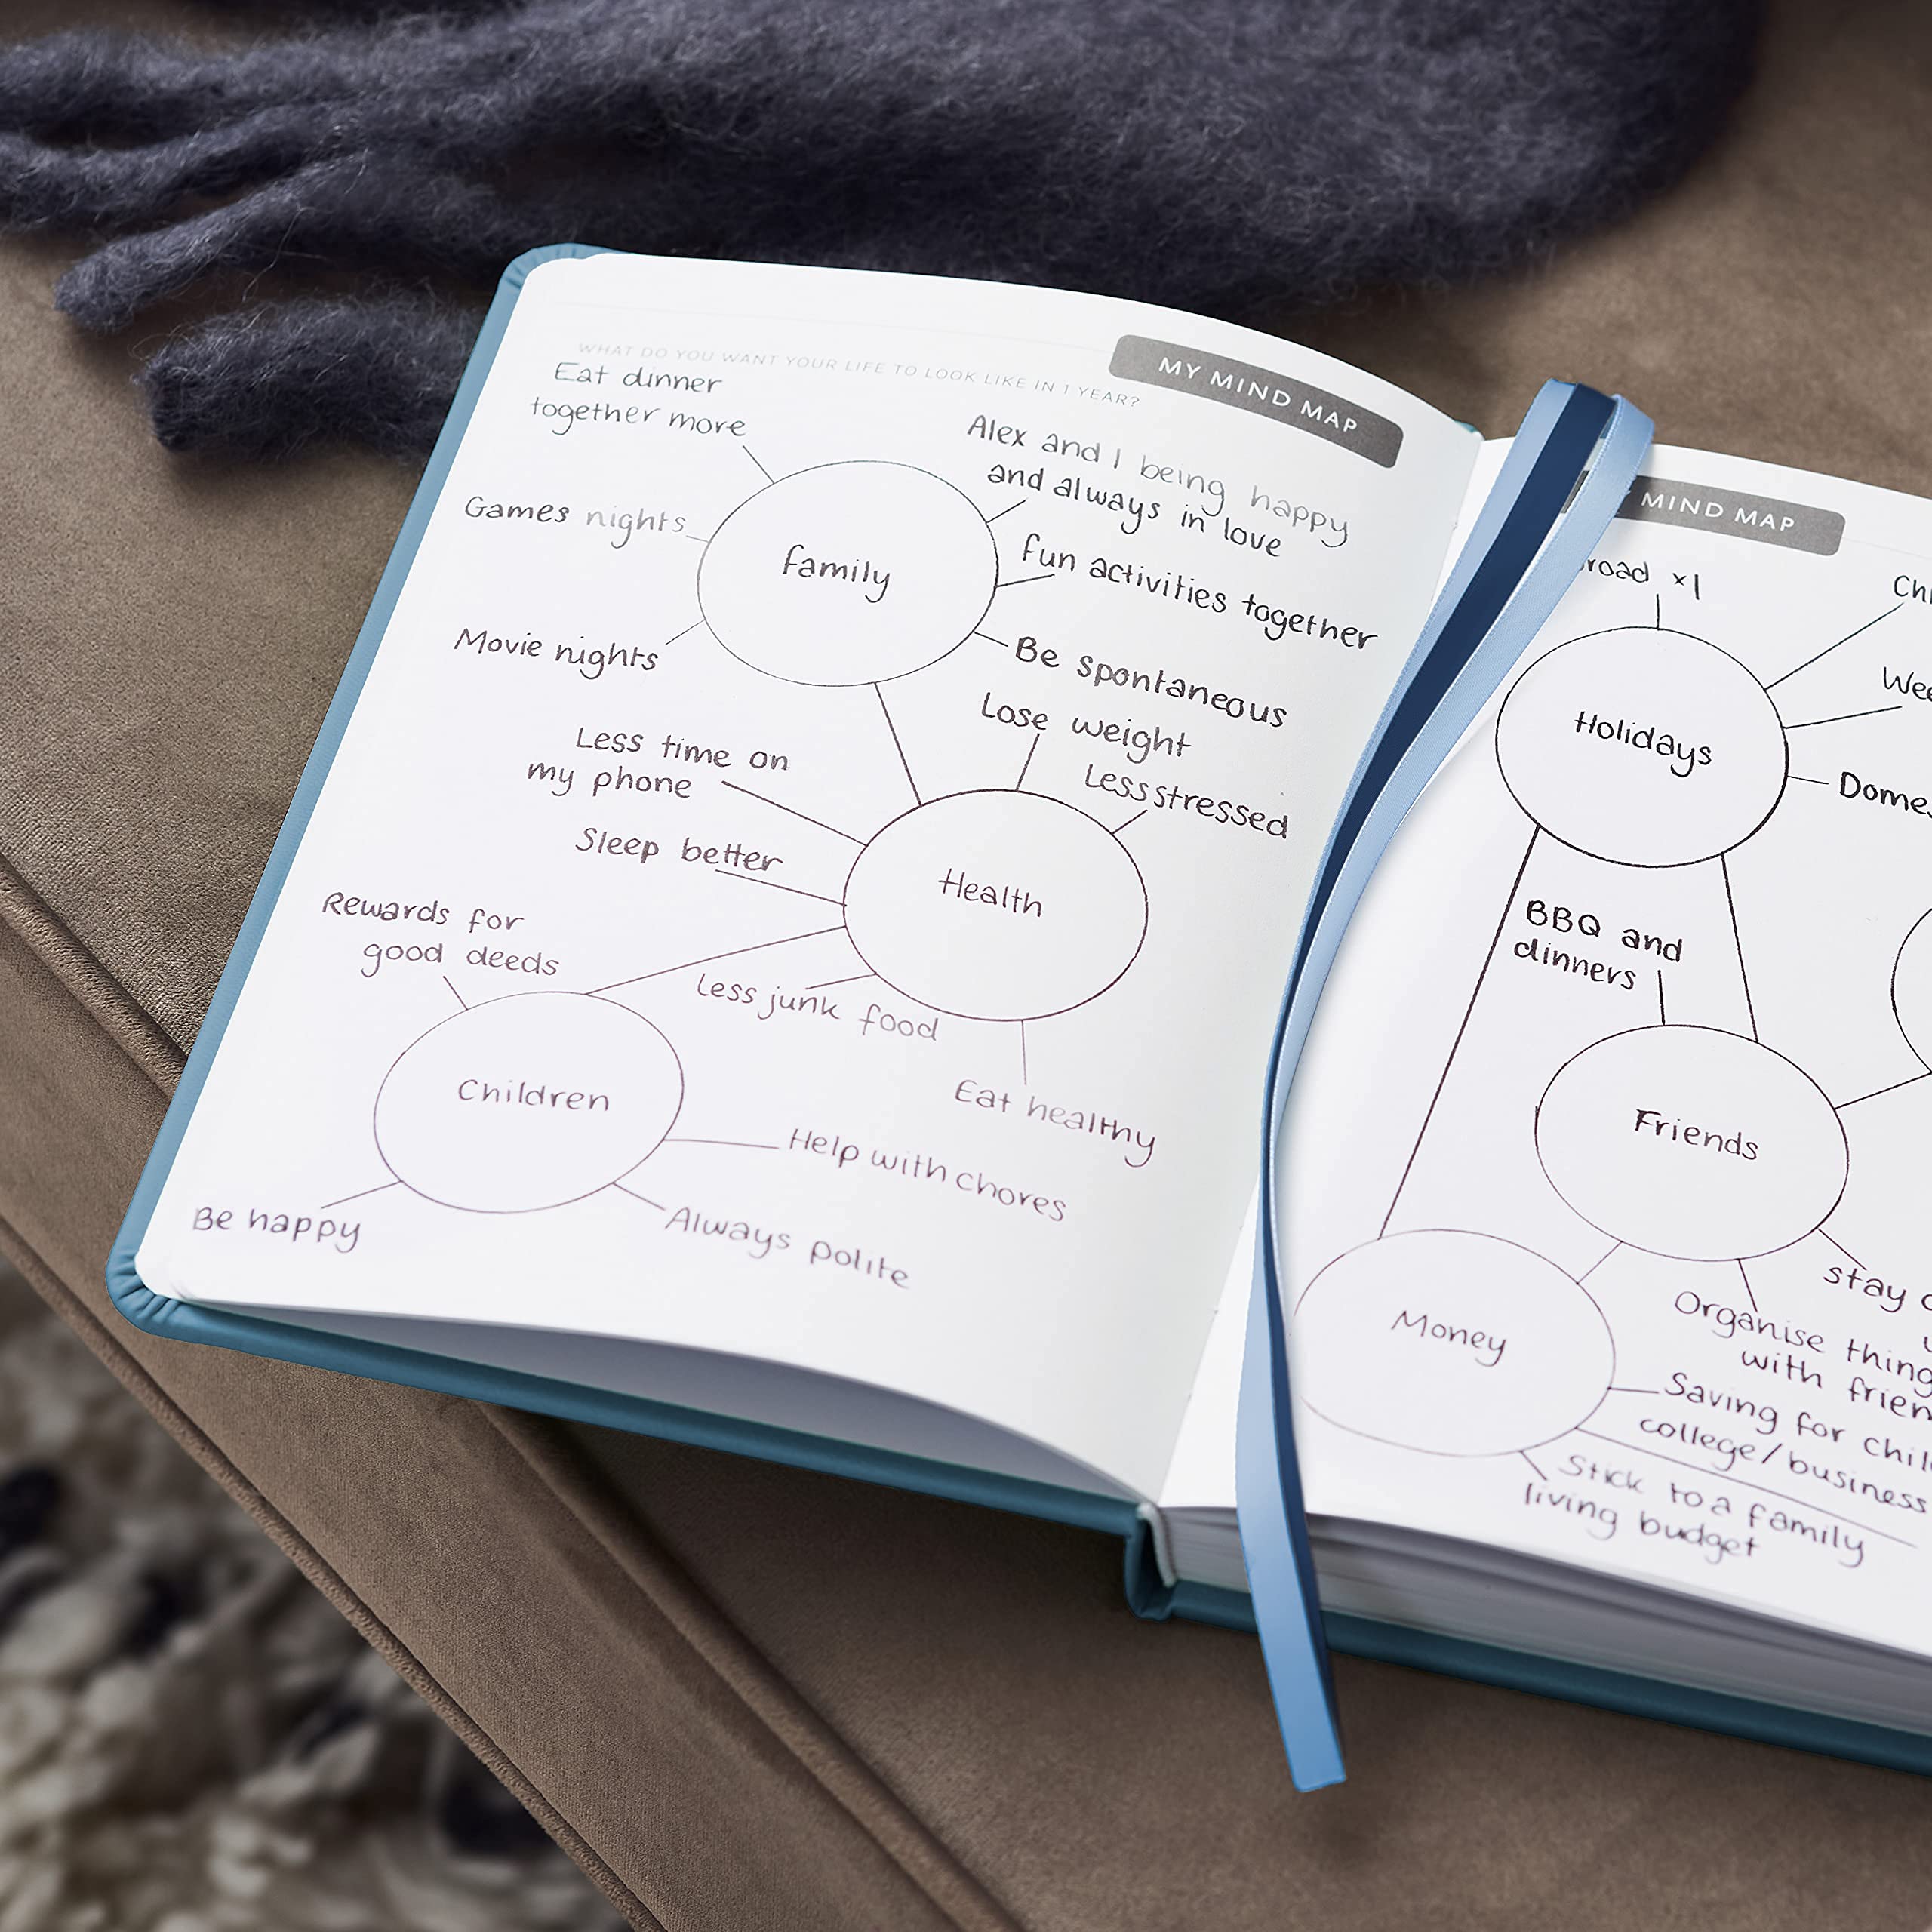 WHAT DO YOU WANT YOUR LIFE TO LOOK LIKE IN 1 YEAR?
MY MIND MAP
Eat dinner
together more
Alex and I being happy
and always in love
Games nights
Family
Fun activities together
Movie nights
Be spontaneous
Lose weight
Less time on
my phone
Less stressed
Sleep better
Health
Rewards for
good deeds
Less junk food
Children
Eat healthy
Help with chores
Be happy
Always polite
MIND MAP
x1
Holidays
BBQ and
dinners
Friends
stay
Organise
with
Money
Saving for
college/business
Stick to a family
living budget